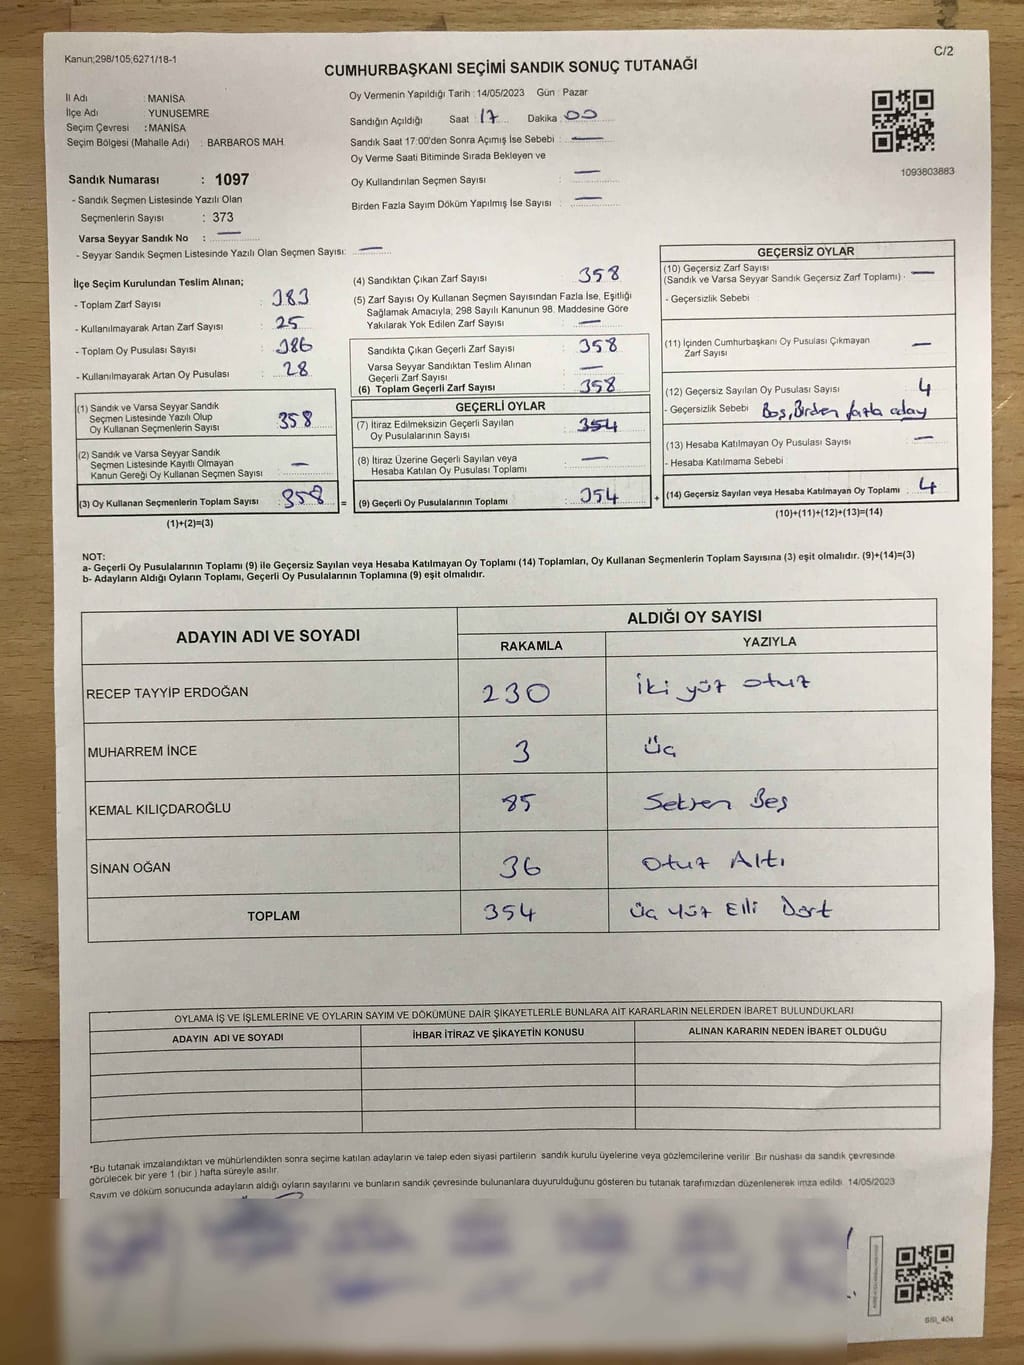 Kanun;298/105,6271/18-1
C/2
CUMHURBAŞKANI SEÇİMİ SANDIK SONUÇ TUTANAĞI
İl Adı : MANİSA
İlçe Adı YUNUSEMRE
Seçim Çevresi : MANİSA
Seçim Bölgesi (Mahalle Adı) : BARBAROS MAH.
Oy Vermenin Yapıldığı Tarih : 14/05/2023 Gün : Pazar
Sandığın Açıldığı Saat : 17 Dakika : 00
Sandık Saat 17:00'den Sonra Açımış İse Sebebi : —
Oy Verme Saati Bitiminde Sırada Bekleyen ve
Oy Kullandırılan Seçmen Sayısı : —
Birden Fazla Sayım Döküm Yapılmış İse Sayısı : —
1093803883
Sandık Numarası : 1097
- Sandık Seçmen Listesinde Yazılı Olan
Seçmenlerin Sayısı : 373
Varsa Seyyar Sandık No : —
- Seyyar Sandık Seçmen Listesinde Yazılı Olan Seçmen Sayısı: —
İlçe Seçim Kurulundan Teslim Alınan;
- Toplam Zarf Sayısı : 383
- Kullanılmayarak Artan Zarf Sayısı : 25
- Toplam Oy Pusulası Sayısı : 386
- Kullanılmayarak Artan Oy Pusulası : 28
(1) Sandık ve Varsa Seyyar Sandık
Seçmen Listesinde Yazılı Olup
Oy Kullanan Seçmenlerin Sayısı : 358
(2) Sandık ve Varsa Seyyar Sandık
Seçmen Listesinde Kayıtlı Olmayan
Kanun Gereği Oy Kullanan Seçmen Sayısı : —
(3) Oy Kullanan Seçmenlerin Toplam Sayısı : 358 =
(1)+(2)=(3)
(4) Sandıktan Çıkan Zarf Sayısı : 358
(5) Zarf Sayısı Oy Kullanan Seçmen Sayısından Fazla İse, Eşitliği
Sağlamak Amacıyla, 298 Sayılı Kanunun 98. Maddesine Göre
Yakılarak Yok Edilen Zarf Sayısı : —
Sandıkta Çıkan Geçerli Zarf Sayısı : 358
Varsa Seyyar Sandıktan Teslim Alınan
Geçerli Zarf Sayısı : —
(6) Toplam Geçerli Zarf Sayısı : 358
GEÇERLİ OYLAR
(7) İtiraz Edilmeksizin Geçerli Sayılan
Oy Pusulalarının Sayısı : 354
(8) İtiraz Üzerine Geçerli Sayılan veya
Hesaba Katılan Oy Pusulası Toplamı : —
(9) Geçerli Oy Pusulalarının Toplamı : 354 +
GEÇERSİZ OYLAR
(10) Geçersiz Zarf Sayısı
(Sandık ve Varsa Seyyar Sandık Geçersiz Zarf Toplamı) : —
- Geçersizlik Sebebi :
(11) İçinden Cumhurbaşkanı Oy Pusulası Çıkmayan
Zarf Sayısı : —
(12) Geçersiz Sayılan Oy Pusulası Sayısı : 4
- Geçersizlik Sebebi : Boş, Birden fazla aday
(13) Hesaba Katılmayan Oy Pusulası Sayısı : —
- Hesaba Katılmama Sebebi :
(14) Geçersiz Sayılan veya Hesaba Katılmayan Oy Toplamı : 4
(10)+(11)+(12)+(13)=(14)
NOT:
a- Geçerli Oy Pusulalarının Toplamı (9) ile Geçersiz Sayılan veya Hesaba Katılmayan Oy Toplamı (14) Toplamları, Oy Kullanan Seçmenlerin Toplam Sayısına (3) eşit olmalıdır. (9)+(14)=(3)
b- Adayların Aldığı Oyların Toplamı, Geçerli Oy Pusulalarının Toplamına (9) eşit olmalıdır.
ADAYIN ADI VE SOYADI
ALDIĞI OY SAYISI
RAKAMLA YAZIYLA
RECEP TAYYİP ERDOĞAN 230 İki yüz otuz
MUHARREM İNCE 3 üç
KEMAL KILIÇDAROĞLU 85 Seksen Beş
SİNAN OĞAN 36 Otuz Altı
TOPLAM 354 Üç Yüz Elli Dört
OYLAMA İŞ VE İŞLEMLERİNE VE OYLARIN SAYIM VE DÖKÜMÜNE DAİR ŞİKAYETLERLE BUNLARA AİT KARARLARIN NELERDEN İBARET BULUNDUKLARI
ADAYIN ADI VE SOYADI İHBAR İTİRAZ VE ŞİKAYETİN KONUSU ALINAN KARARIN NEDEN İBARET OLDUĞU
*Bu tutanak imzalandıktan ve mühürlendikten sonra seçime katılan adayların ve talep eden siyasi partilerin sandık kurulu üyelerine veya gözlemcilerine verilir. Bir nüshası da sandık çevresinde
görülecek bir yere 1 (bir ) hafta süreyle asılır.
Sayım ve döküm sonucunda adayların aldığı oyların sayılarını ve bunların sandık çevresinde bulunanlara duyurulduğunu gösteren bu tutanak tarafımızdan düzenlenerek imza edildi. 14/05/2023